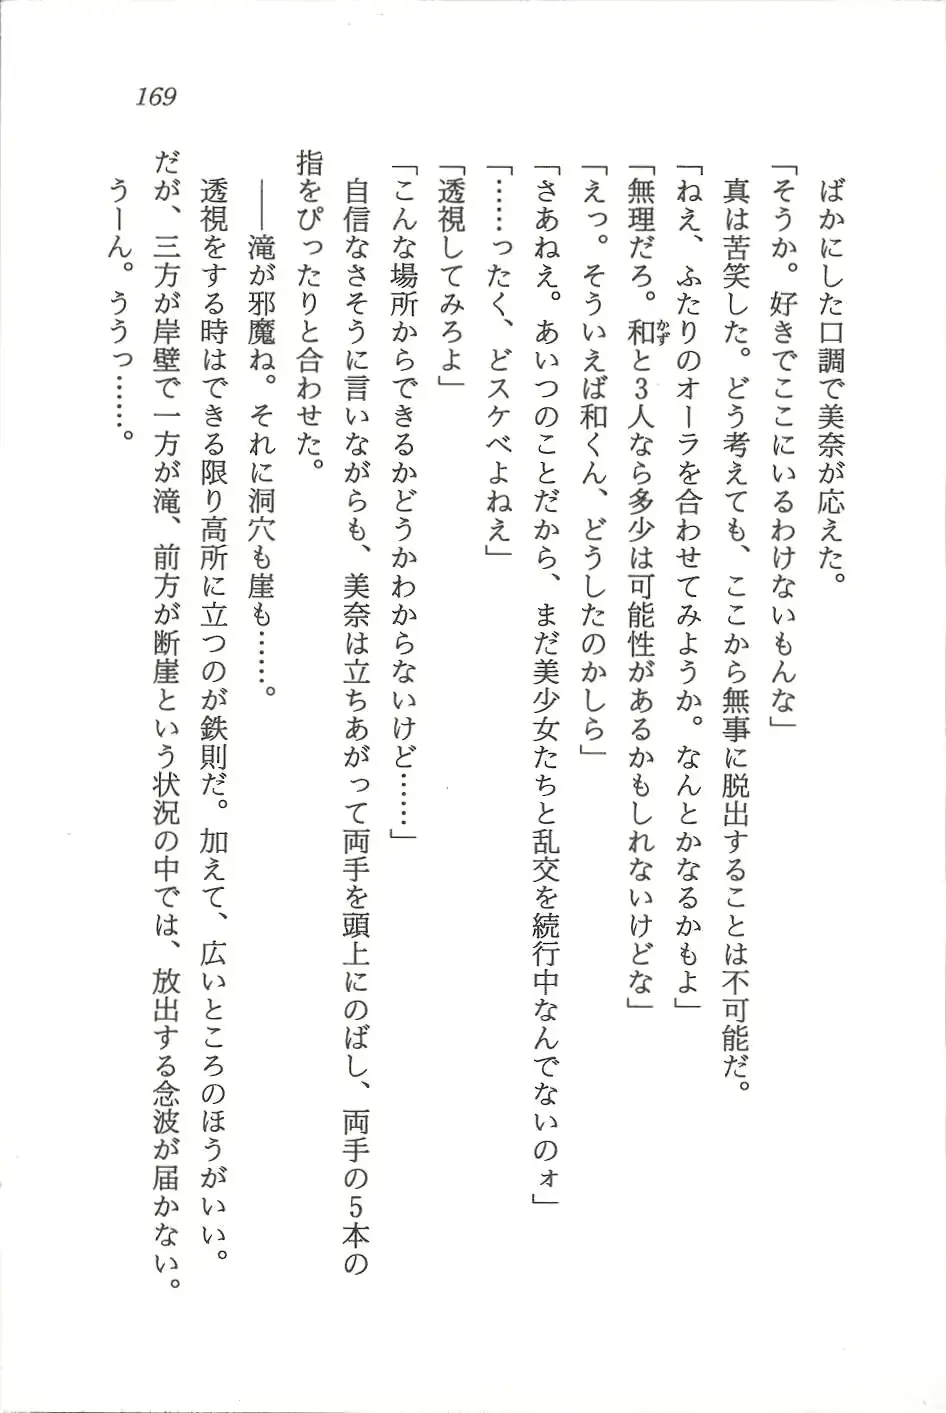 169
ばかにした口調で美奈が応えた。
「そうか。好きでここにいるわけないもんな」
真は苦笑した。どう考えても、ここから無事に脱出することは不可能だ。
「ねえ、ふたりのオーラを合わせてみようか。なんとかなるかもよ」
「無理だろ。和かずと3人なら多少は可能性があるかもしれないけどな」
「えっ。そういえば和くん、どうしたのかしら」
「さあねえ。あいつのことだから、まだ美少女たちと乱交を続行中なんでないのォ」
「……ったく、どスケベよねえ」
「透視してみろよ」
「こんな場所からできるかどうかわからないけど……」
自信なさそうに言いながらも、美奈は立ちあがって両手を頭上にのばし、両手の5本の
指をぴったりと合わせた。
――滝が邪魔ね。それに洞穴も崖も……。
透視をする時はできる限り高所に立つのが鉄則だ。加えて、広いところのほうがいい。
だが、三方が岸壁で一方が滝、前方が断崖という状況の中では、放出する念波が届かない。
うーん。ううっ……。